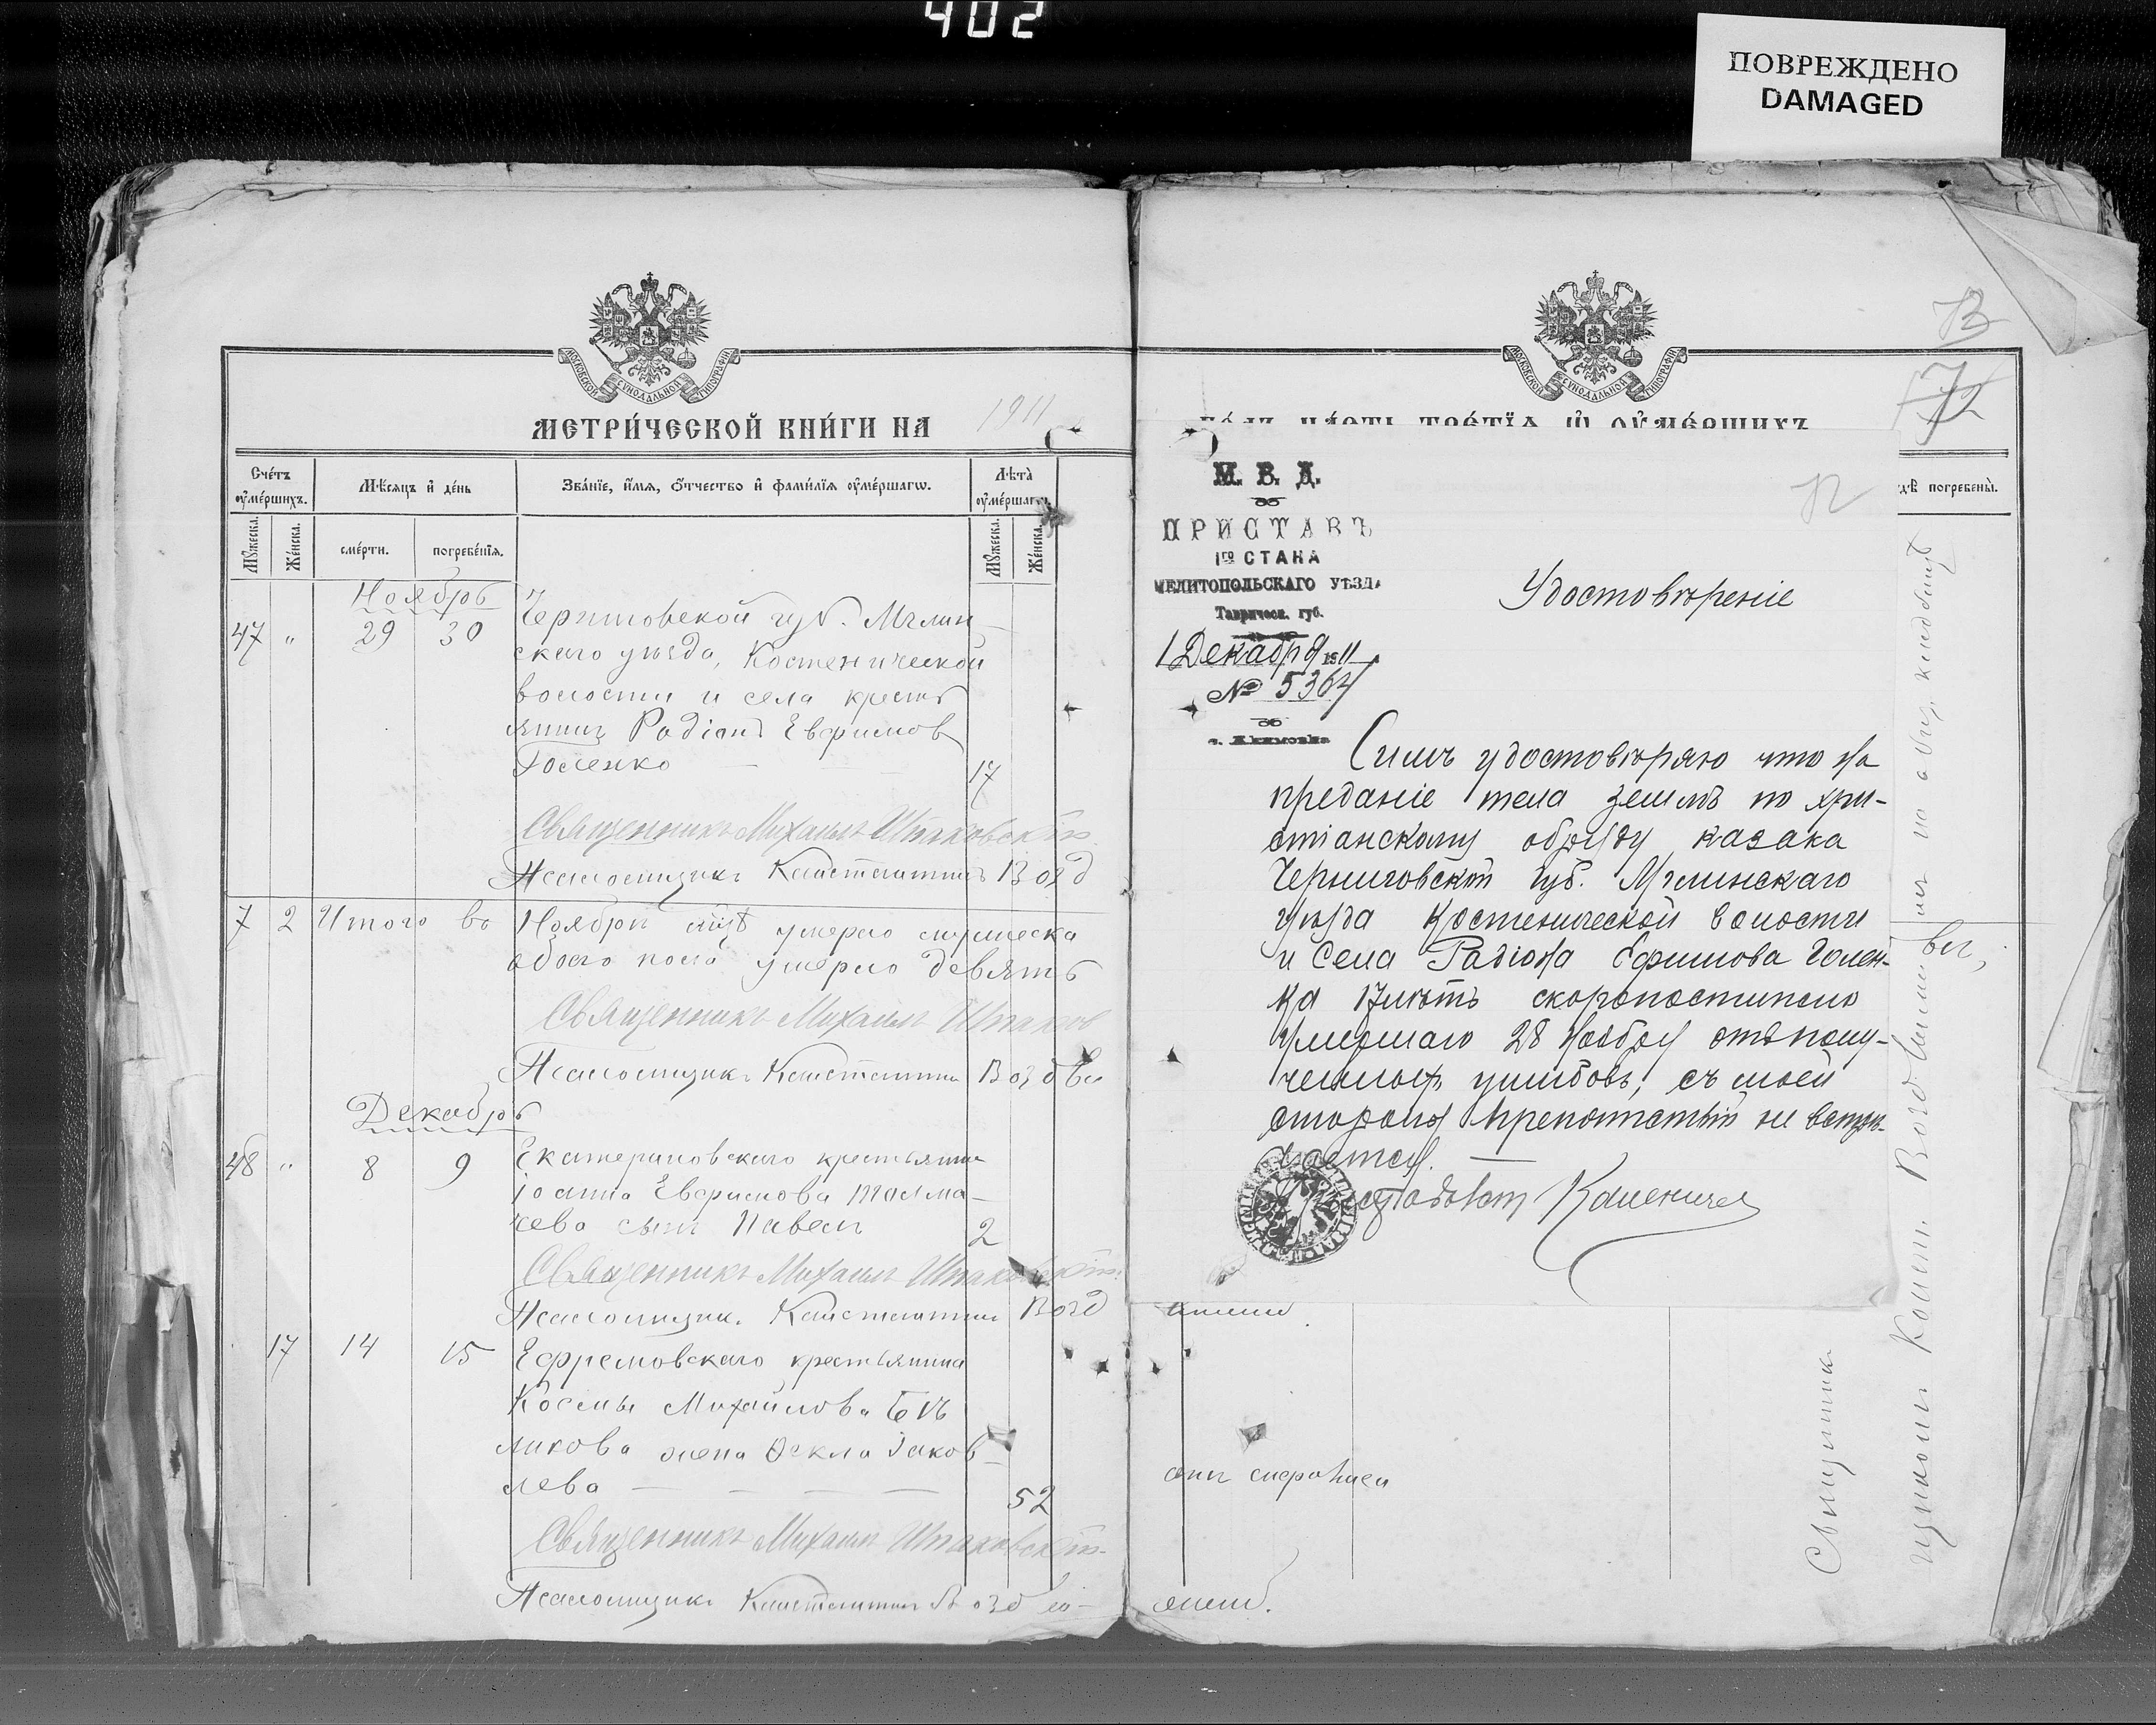 402
ПОВРЕЖДЕНО
DAMAGED
МОСКОВСКОЙ СѴНОДАЛЬНОЙ ТИПОГРАФІИ
МЕТРИ́ЧЕСКОЙ КНИ́ГИ НА 1911
Сче́тъ ᲂу҆ме́ршихъ.
Мѣ́сяцъ и҆ де́нь
Зва́нїе, и҆́мѧ, ѻ҆́тчество и҆ фами́лїѧ ᲂу҆ме́ршагѡ.
Лѣта̀ ᲂу҆ме́ршагѡ.
Мꙋ́жеска.
Же́нска.
сме́рти.
погребе́нїѧ.
Мꙋ́жеска.
Же́нска.
Ноябрь
47 " 29 30 Черниговской губ. Мглин-
скаго уѣзда, Костенической
волости и села кресть
янинъ Радіонъ Евфимов
Голенко — — 17
Священникъ Михаилъ Шпаковскій
Псаломщикъ Константинъ Возд
7 2 Итого въ Ноябрѣ мцѣ умерло
обоего пола умерло девять
Священникъ Михаилъ Шпаков
Псаломщикъ Константинъ Воздви
Декабрь
48 " 8 9 Екатериновскаго крестьянина
Іоанна Евфимова Толма-
чева сынъ Павелъ 2
Священникъ Михаилъ Шпаковскій
Псаломщикъ Константинъ Возд
17 14 15 Ефремовскаго крестьянина
Косьмы Михайлова Бѣ
ликова жена Ѳекла Іаков-
лева — — — — 52
Священникъ Михаилъ Шпаковскій
Псаломщикъ Константинъ Воздви-
МОСКОВСКОЙ СѴНОДАЛЬНОЙ ТИПОГРАФІИ
13
72
ЧА́СТЬ ТРЕ́ТЇѦ Ѡ҆ ᲂУ҆МЕ́РШИХЪ
погребены̀.
12
М. В. Д.
ПРИСТАВЪ
1го СТАНА
МЕЛИТОПОЛЬСКАГО УѢЗДА
Таврическ. губ.
1 Декабря 1911
№ 5364
с. Акимовка
Удостовѣреніе
Симъ удостовѣряю что на
преданіе тела землѣ по хри-
стіанскому обряду казака
Черниговской губ. Мглинскаго
уѣзда Костенической волости
и Села Радіона Ефимова Голен-
ка 17 лѣтъ скоропостижно
умершаго 28 Ноября отъ полу-
ченныхъ ушибовъ, съ моей
стороны препятствій не встрѣ-
чается. —
Каленичен
Священникъ